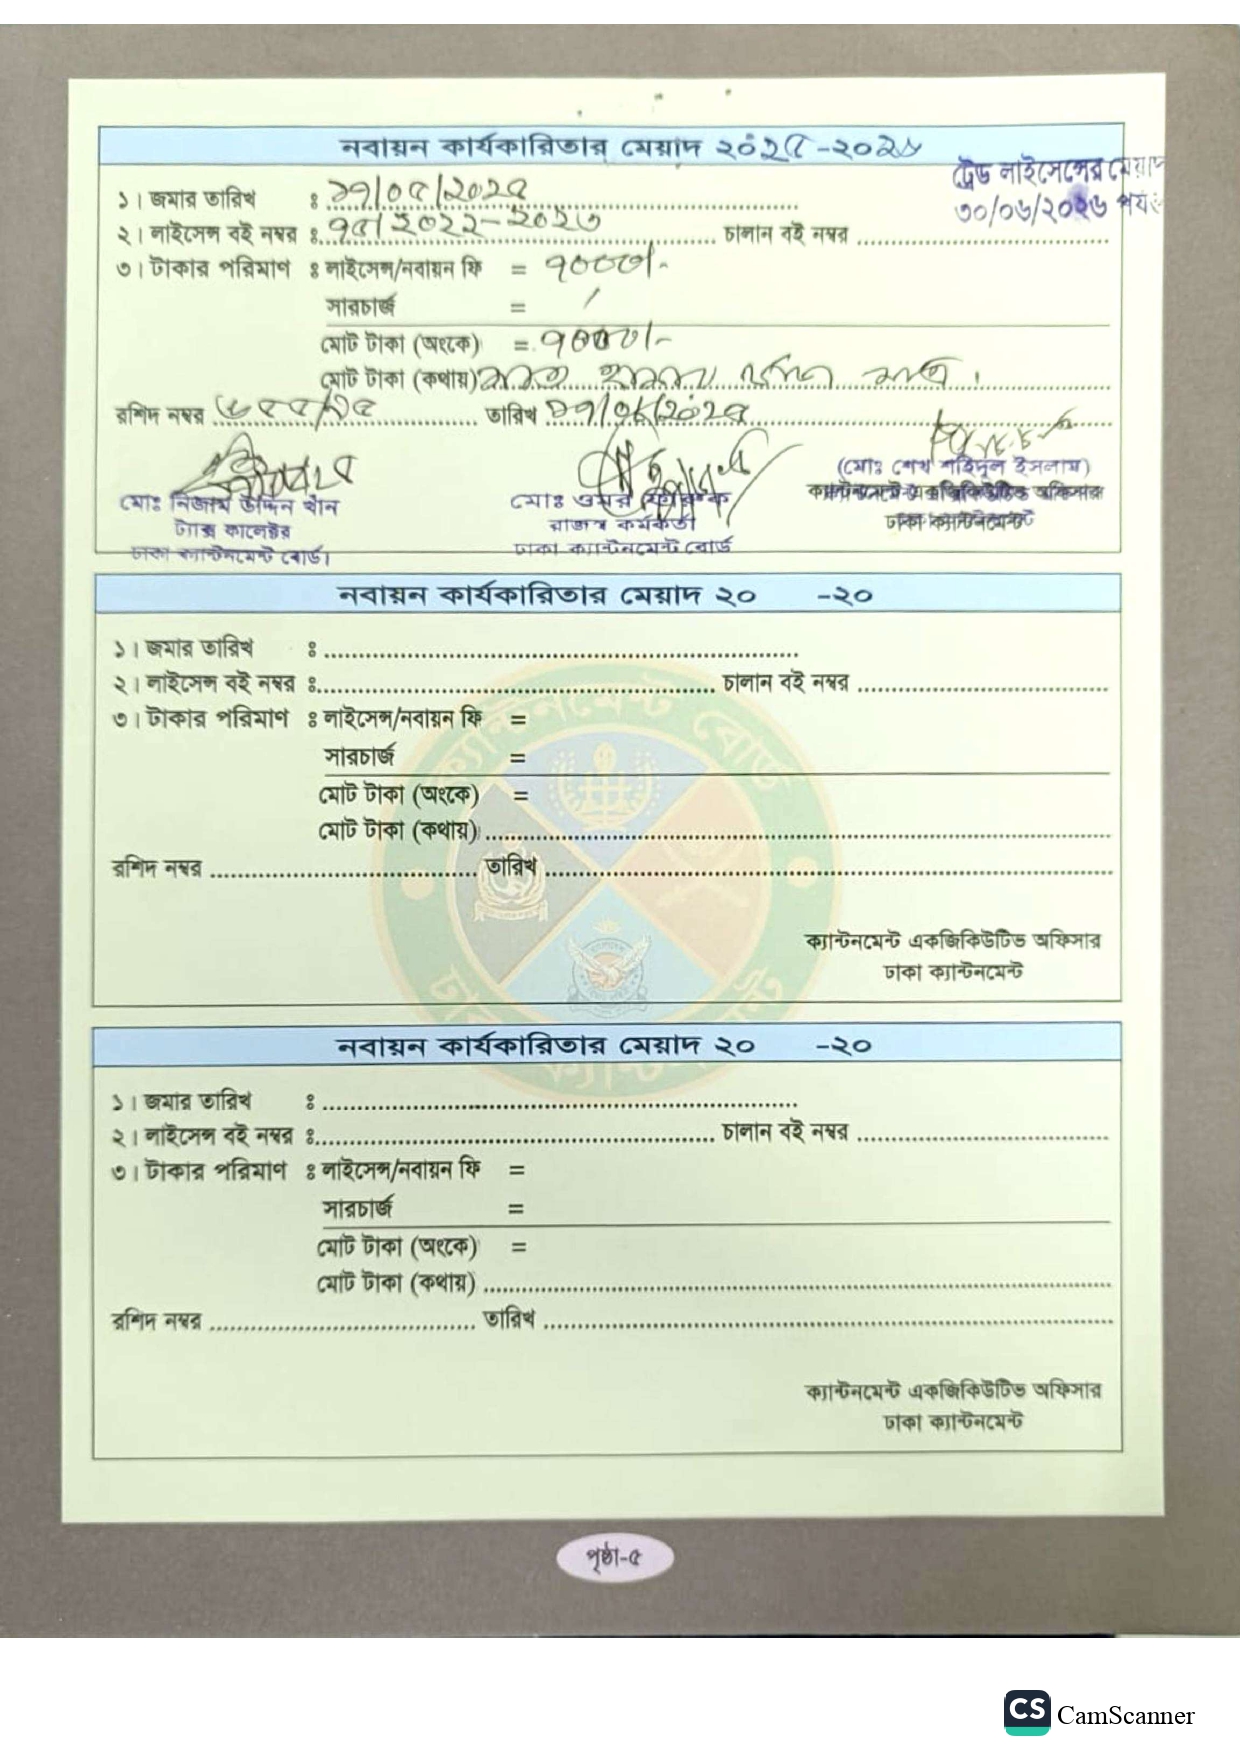 নবায়ন কার্যকারিতার মেয়াদ ২০২৫-২০২৬
ট্রেড লাইসেন্সের মেয়াদ
৩০/০৬/২০২৬ পর্যন্ত
১। জমার তারিখ : ১৭/০৫/২০২৫
২। লাইসেন্স বই নম্বর : ৭৫/২০২২-২০২৩ চালান বই নম্বর
৩। টাকার পরিমাণ : লাইসেন্স/নবায়ন ফি = ৭০০০/-
সারচার্জ = /
মোট টাকা (অংকে) = ৭০০০/-
মোট টাকা (কথায়) সাত হাজার টাকা মাত্র।
রশিদ নম্বর তারিখ
মোঃ নিজাম উদ্দিন খাঁন
ট্যাক্স কালেক্টর
ঢাকা ক্যান্টনমেন্ট বোর্ড।
মোঃ ওমর ফারুক
রাজস্ব কর্মকর্তা
ঢাকা ক্যান্টনমেন্ট বোর্ড
(মোঃ শেখ শহিদুল ইসলাম)
ক্যান্টনমেন্ট একজিকিউটিভ অফিসার
ঢাকা ক্যান্টনমেন্ট
নবায়ন কার্যকারিতার মেয়াদ ২০ -২০
১। জমার তারিখ :
২। লাইসেন্স বই নম্বর : চালান বই নম্বর
৩। টাকার পরিমাণ : লাইসেন্স/নবায়ন ফি =
সারচার্জ =
মোট টাকা (অংকে) =
মোট টাকা (কথায়)
রশিদ নম্বর তারিখ
ক্যান্টনমেন্ট একজিকিউটিভ অফিসার
ঢাকা ক্যান্টনমেন্ট
নবায়ন কার্যকারিতার মেয়াদ ২০ -২০
১। জমার তারিখ :
২। লাইসেন্স বই নম্বর : চালান বই নম্বর
৩। টাকার পরিমাণ : লাইসেন্স/নবায়ন ফি =
সারচার্জ =
মোট টাকা (অংকে) =
মোট টাকা (কথায়)
রশিদ নম্বর তারিখ
ক্যান্টনমেন্ট একজিকিউটিভ অফিসার
ঢাকা ক্যান্টনমেন্ট
পৃষ্ঠা-৫
CS CamScanner